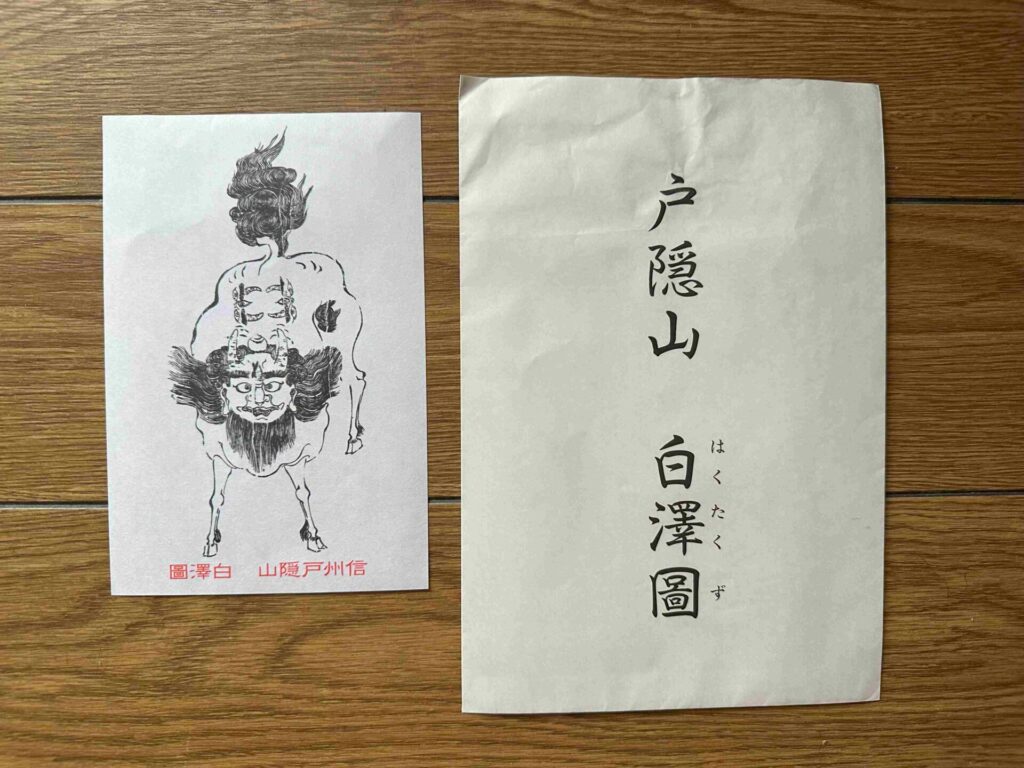 信州戸隠山　白澤圖
戸隠山　白澤圖
はくたくず